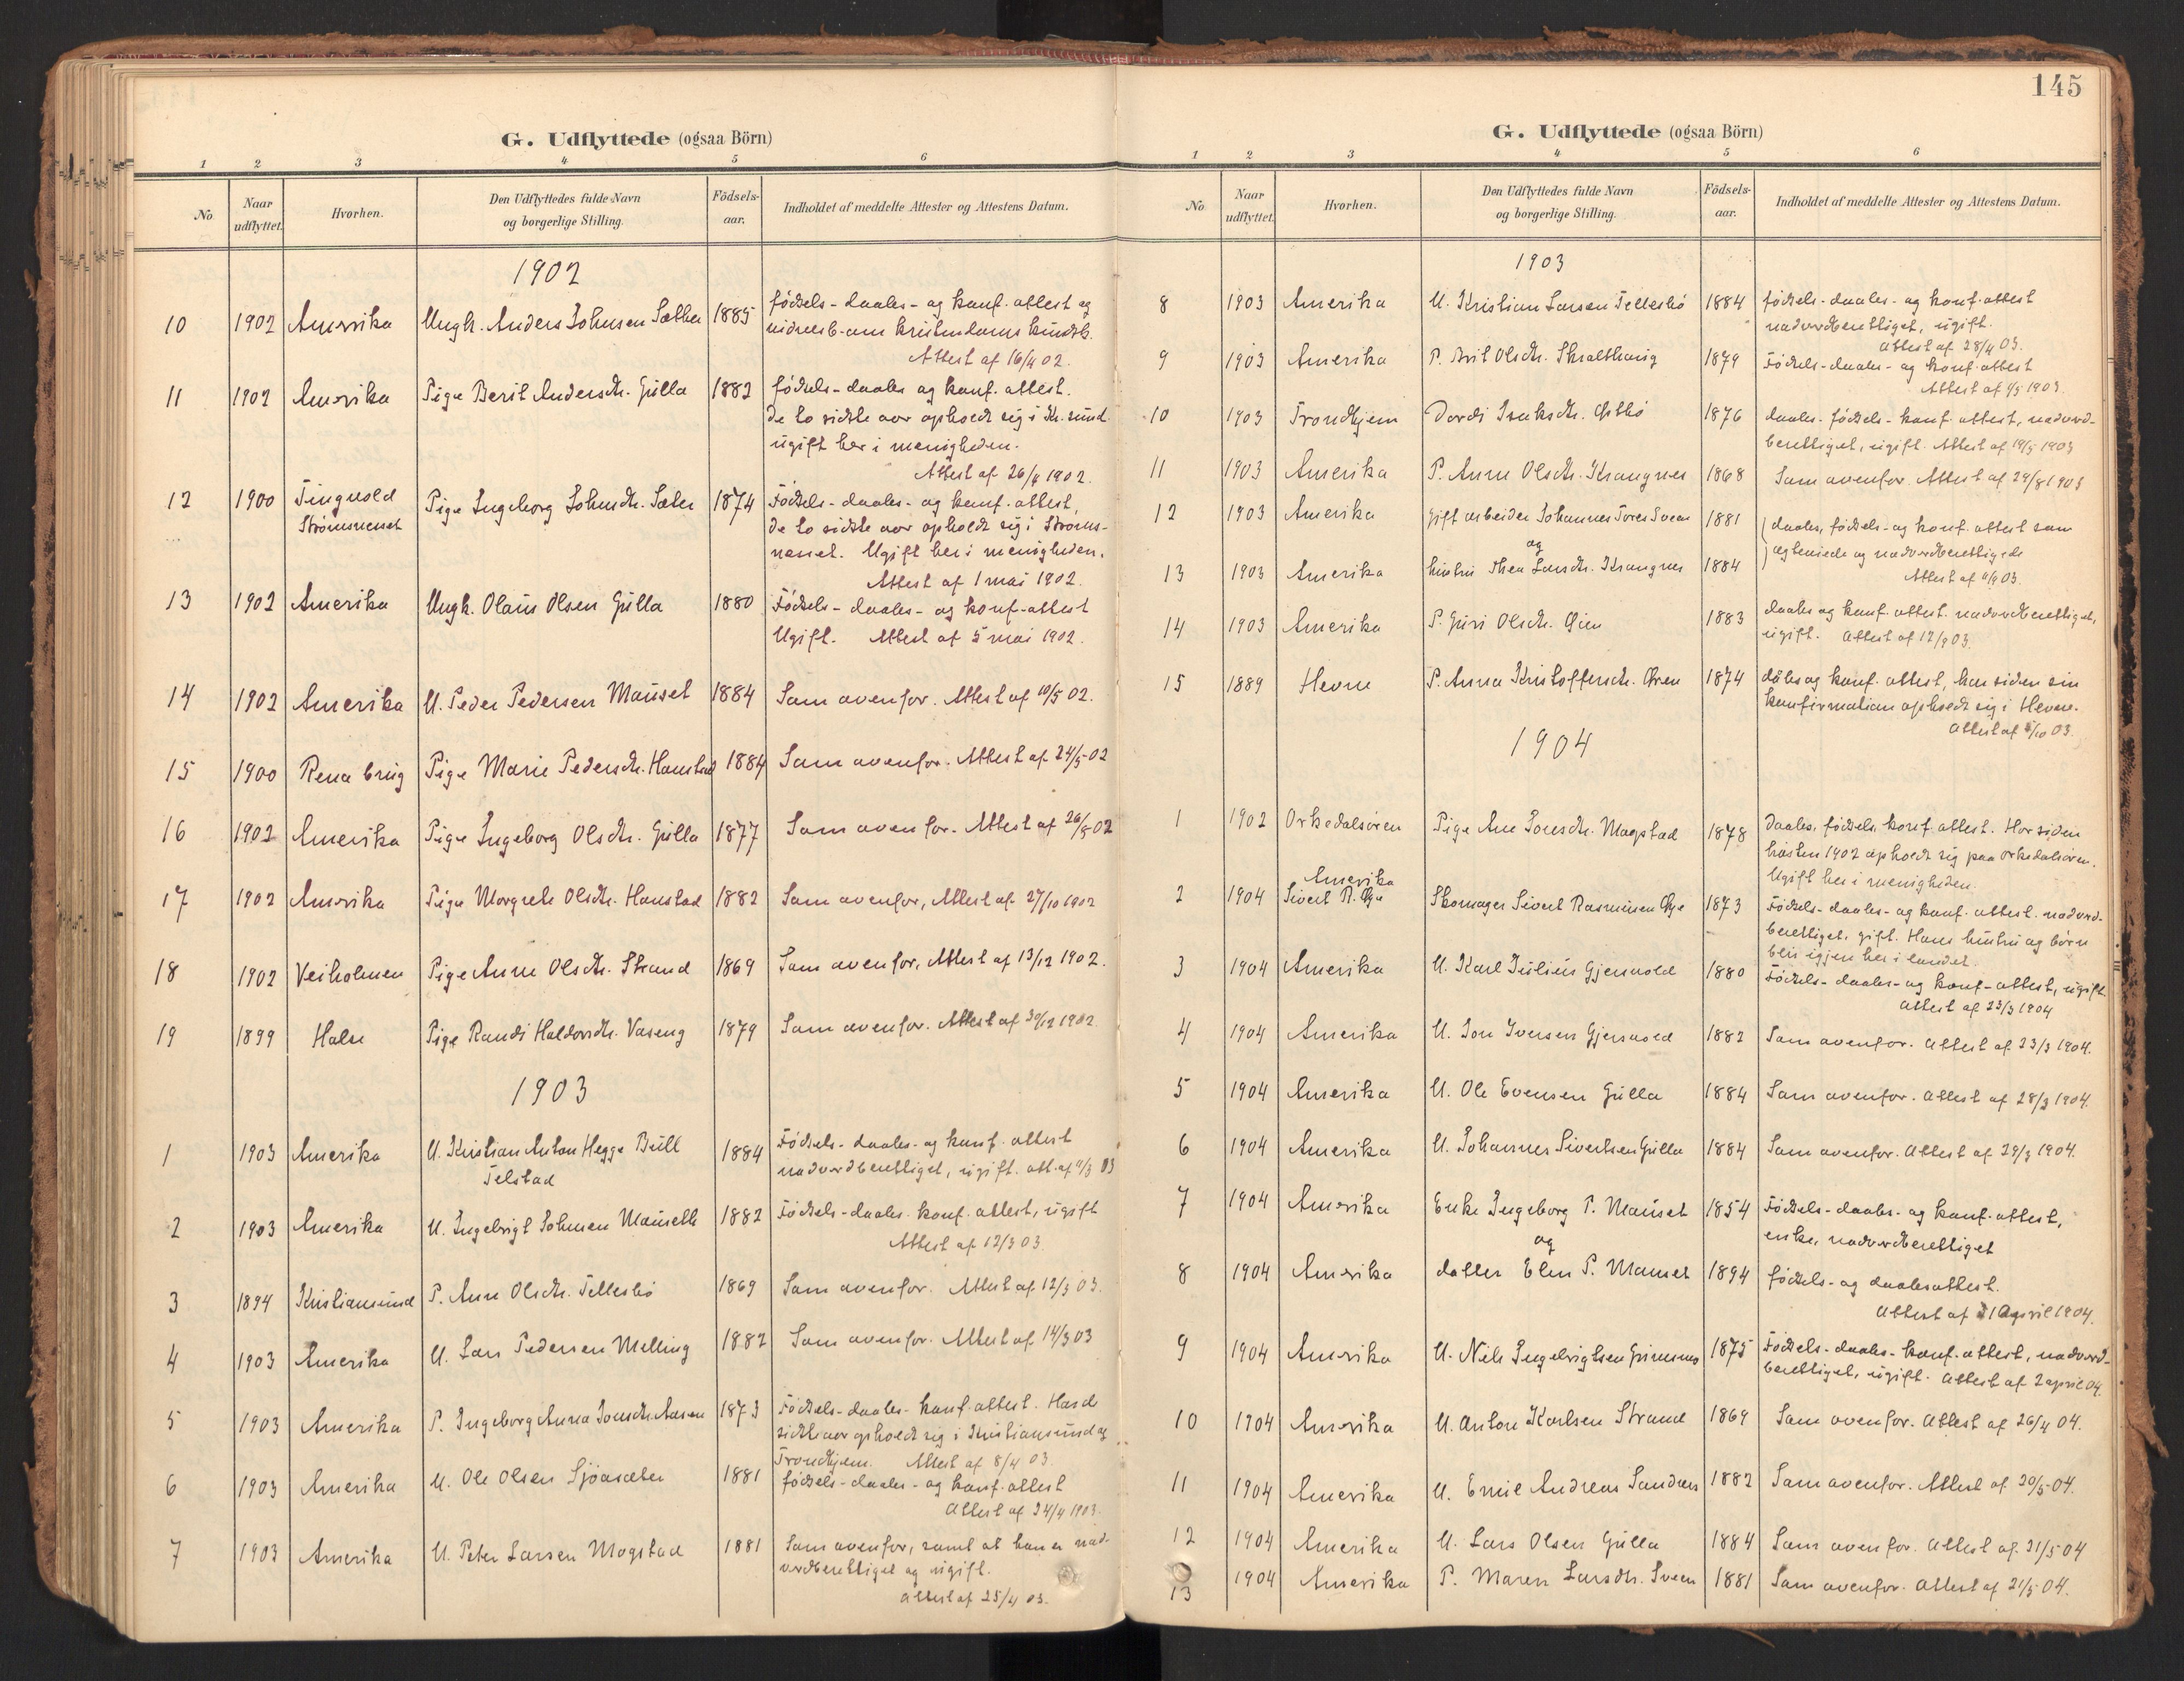 G. Udflyttede (ogsaa Börn)
1 2 3 4 5 6
No Naar udflyttet. Hvorhen. Den Udflyttedes fulde Navn og borgerlige Stilling. Födsels-aar. Indholdet af meddelte Attester og Attestens Datum.
1902
10 1902 Amerika Ungk. Anders Johnsen Sæther 1885 födsels-daabs- og konf. attest og
vidnesb. om kristendoms kundsk.
Attest af 16/4 02.
11 1902 Amerika Pige Berit Andersdtr. Gulla 1882 födsels-daabs og konf. attest.
de to sidste aar opholdt sig i Kr.sund
ugift her i menigheden.
Attest af 26/4 1902.
12 1900 Tingvold Pige Ingeborg Johnsdtr. Sæter 1874 Födsels-daabs- og konf. attest,
Strömsneset de to sidste aar opholdt sig i Ströms-
neset. Ugift her i menigheden.
Attest af 1 mai 1902.
13 1902 Amerika Ungk. Olaus Olsen Gulla 1880 Födsels-daabs- og konf-attest
Ugift. Attest af 5 mai 1902.
14 1902 Amerika U. Peder Pedersen Mauset 1884 Som ovenfor. Attest af 10/5 02.
15 1900 Rena brug Pige Marie Pedersdtr. Hamstad 1884 Som ovenfor. Attest af 24/5 02
16 1902 Amerika Pige Ingeborg Olsdtr. Gulla 1877 Som ovenfor. Attest af 26/8 02
17 1902 Amerika Pige Margrete Olsdtr. Hanstad 1882 Som ovenfor, Attest af 27/10 1902
18 1902 Veiholmen Pige Anne Olsdtr. Strand 1869 Som ovenfor, Attest af 13/12 1902.
19 1899 Halse Pige Randi Haldorsdtr. Vaseng 1879 Som ovenfor. Attest af 30/12 1902.
1903
1 1903 Amerika U. Kristian Anton Hegge Bull 1884 Födsels-daabs- og konf. attest
Telstad nadverdberettiget, ugift. att. af 11/3 03
2 1903 Amerika U. Ingebrigt Johnsen Mauseth 1882 Födsels-daabs. konf. attest, ugift
Attest af 12/3 03.
3 1894 Kristiansund P. Ane Olsdtr. Tellesbö 1869 Som ovenfor. Attest af 12/3 03.
4 1903 Amerika U. Lars Pedersen Melling 1882 Som ovenfor. Attest af 14/3 03
5 1903 Amerika P. Ingeborg Anna Jonsdtr. Aasen 1873 Födsels-daabs-konf. attest. Har d
sidste aar opholdt sig i Kristiansund og
Trondhjem. Attest af 8/4 03.
6 1903 Amerika U. Ole Olsen Sjöasæter 1881 födsels-daabs- og konf. attest
Attest af 24/4 1903.
7 1903 Amerika U. Peter Larsen Mogstad 1881 Som ovenfor, samt at han er nad-
verdberettiget og ugift.
Attest af 25/4 03.
145
G. Udflyttede (ogsaa Börn)
1 2 3 4 5 6
No Naar udflyttet. Hvorhen. Den Udflyttedes fulde Navn og borgerlige Stilling. Födsels-aar. Indholdet af meddelte Attester og Attestens Datum.
1903
8 1903 Amerika U. Kristian Larsen Tellesbö 1884 födsels-daabs- og konf-attest
nadverdberettiget, ugift.
Attest af 28/4 03.
9 1903 Amerika P. Brit Olsdtr. Skralthaug 1879 Födsels-daabs- og konf-attest
Attest af 1903.
10 1903 Trondhjem Dordi Isaksdtr. Østbö 1876 daabs-födsels-konf. attest, nadverd-
berettiget, ugift. Attest af 19/5 1903
11 1903 Amerika P. Anne Olsdtr. Krangnes 1868 Som ovenfor. Attest af 29/8 1903
12 1903 Amerika Gift arbeider Johannes Tores. Sveen 1881 daabs, födsels- og konf. attest som
og
13 1903 Amerika hustru Thea Larsdtr. Krangnes 1884 egteviede og nadverdberettigede
Attest af 11/9 03.
14 1903 Amerika P. Guri Olsdtr. Øien 1883 daabs og konf. attest. nadverdberettiget,
ugift. Attest af 12/9 03.
15 1889 Hevne P. Anna Kristoffersdtr. Øren 1874 döbs og konf. attest, har siden sin
konfirmation opholdt sig i Hevne.
Attest af 5/10 03.
1904
1 1902 Orkedalsören Pige Ane Jonsdtr. Mogstad 1878 Daabs, födsels, konf. attest. Har siden
hösten 1902 opholdt sig paa Orkedalsören.
Ugift her i menigheden.
2 1904 Amerika
Sivert R. Øye Skomager Sivert Rasmussen Øye 1873 Födsels-daabs- og konf. attest. nadverd-
berettiget, gift. Hans hustru og börn
blir igjen her i landet.
3 1904 Amerika U. Karl Julius Gjersvold 1880 Födsels-daabs- og konf-attest, ugift.
Attest af 23/3 1904
4 1904 Amerika U. Jon Iversen Gjersvold 1882 Som ovenfor. Attest af 23/3 1904.
5 1904 Amerika U. Ole Evensen Gulla 1884 Som ovenfor. Attest af 28/3 1904.
6 1904 Amerika U. Johannes Sivertsen Gulla 1884 Som ovenfor. Attest af 29/3 1904.
7 1904 Amerika Enke Ingeborg P. Mauset 1854 Födsels-daabs- og konf. attest,
og enke, nadverdberettiget
8 1904 Amerika datter Elen P. Mauset 1894 födsels- og daabsattest.
Attest af 1 April 1904.
9 1904 Amerika U. Nils Ingebrigtsen Grimsmo 1875 Födsels-daabs-konf. attest, nadverd-
berettiget, ugift. Attest af 2 april 04.
10 1904 Amerika U. Anton Karlsen Strand 1869 Som ovenfor. Attest af 26/4 04.
11 1904 Amerika U. Emil Andreas Sandnes 1882 Som ovenfor. Attest af 20/5 04.
12 1904 Amerika U. Lars Olsen Gulla 1884 Som ovenfor. Attest af 21/5 04
13 1904 Amerika P. Maren Larsdtr. Sveen 1881 Som ovenfor. Attest af 21/5 04.